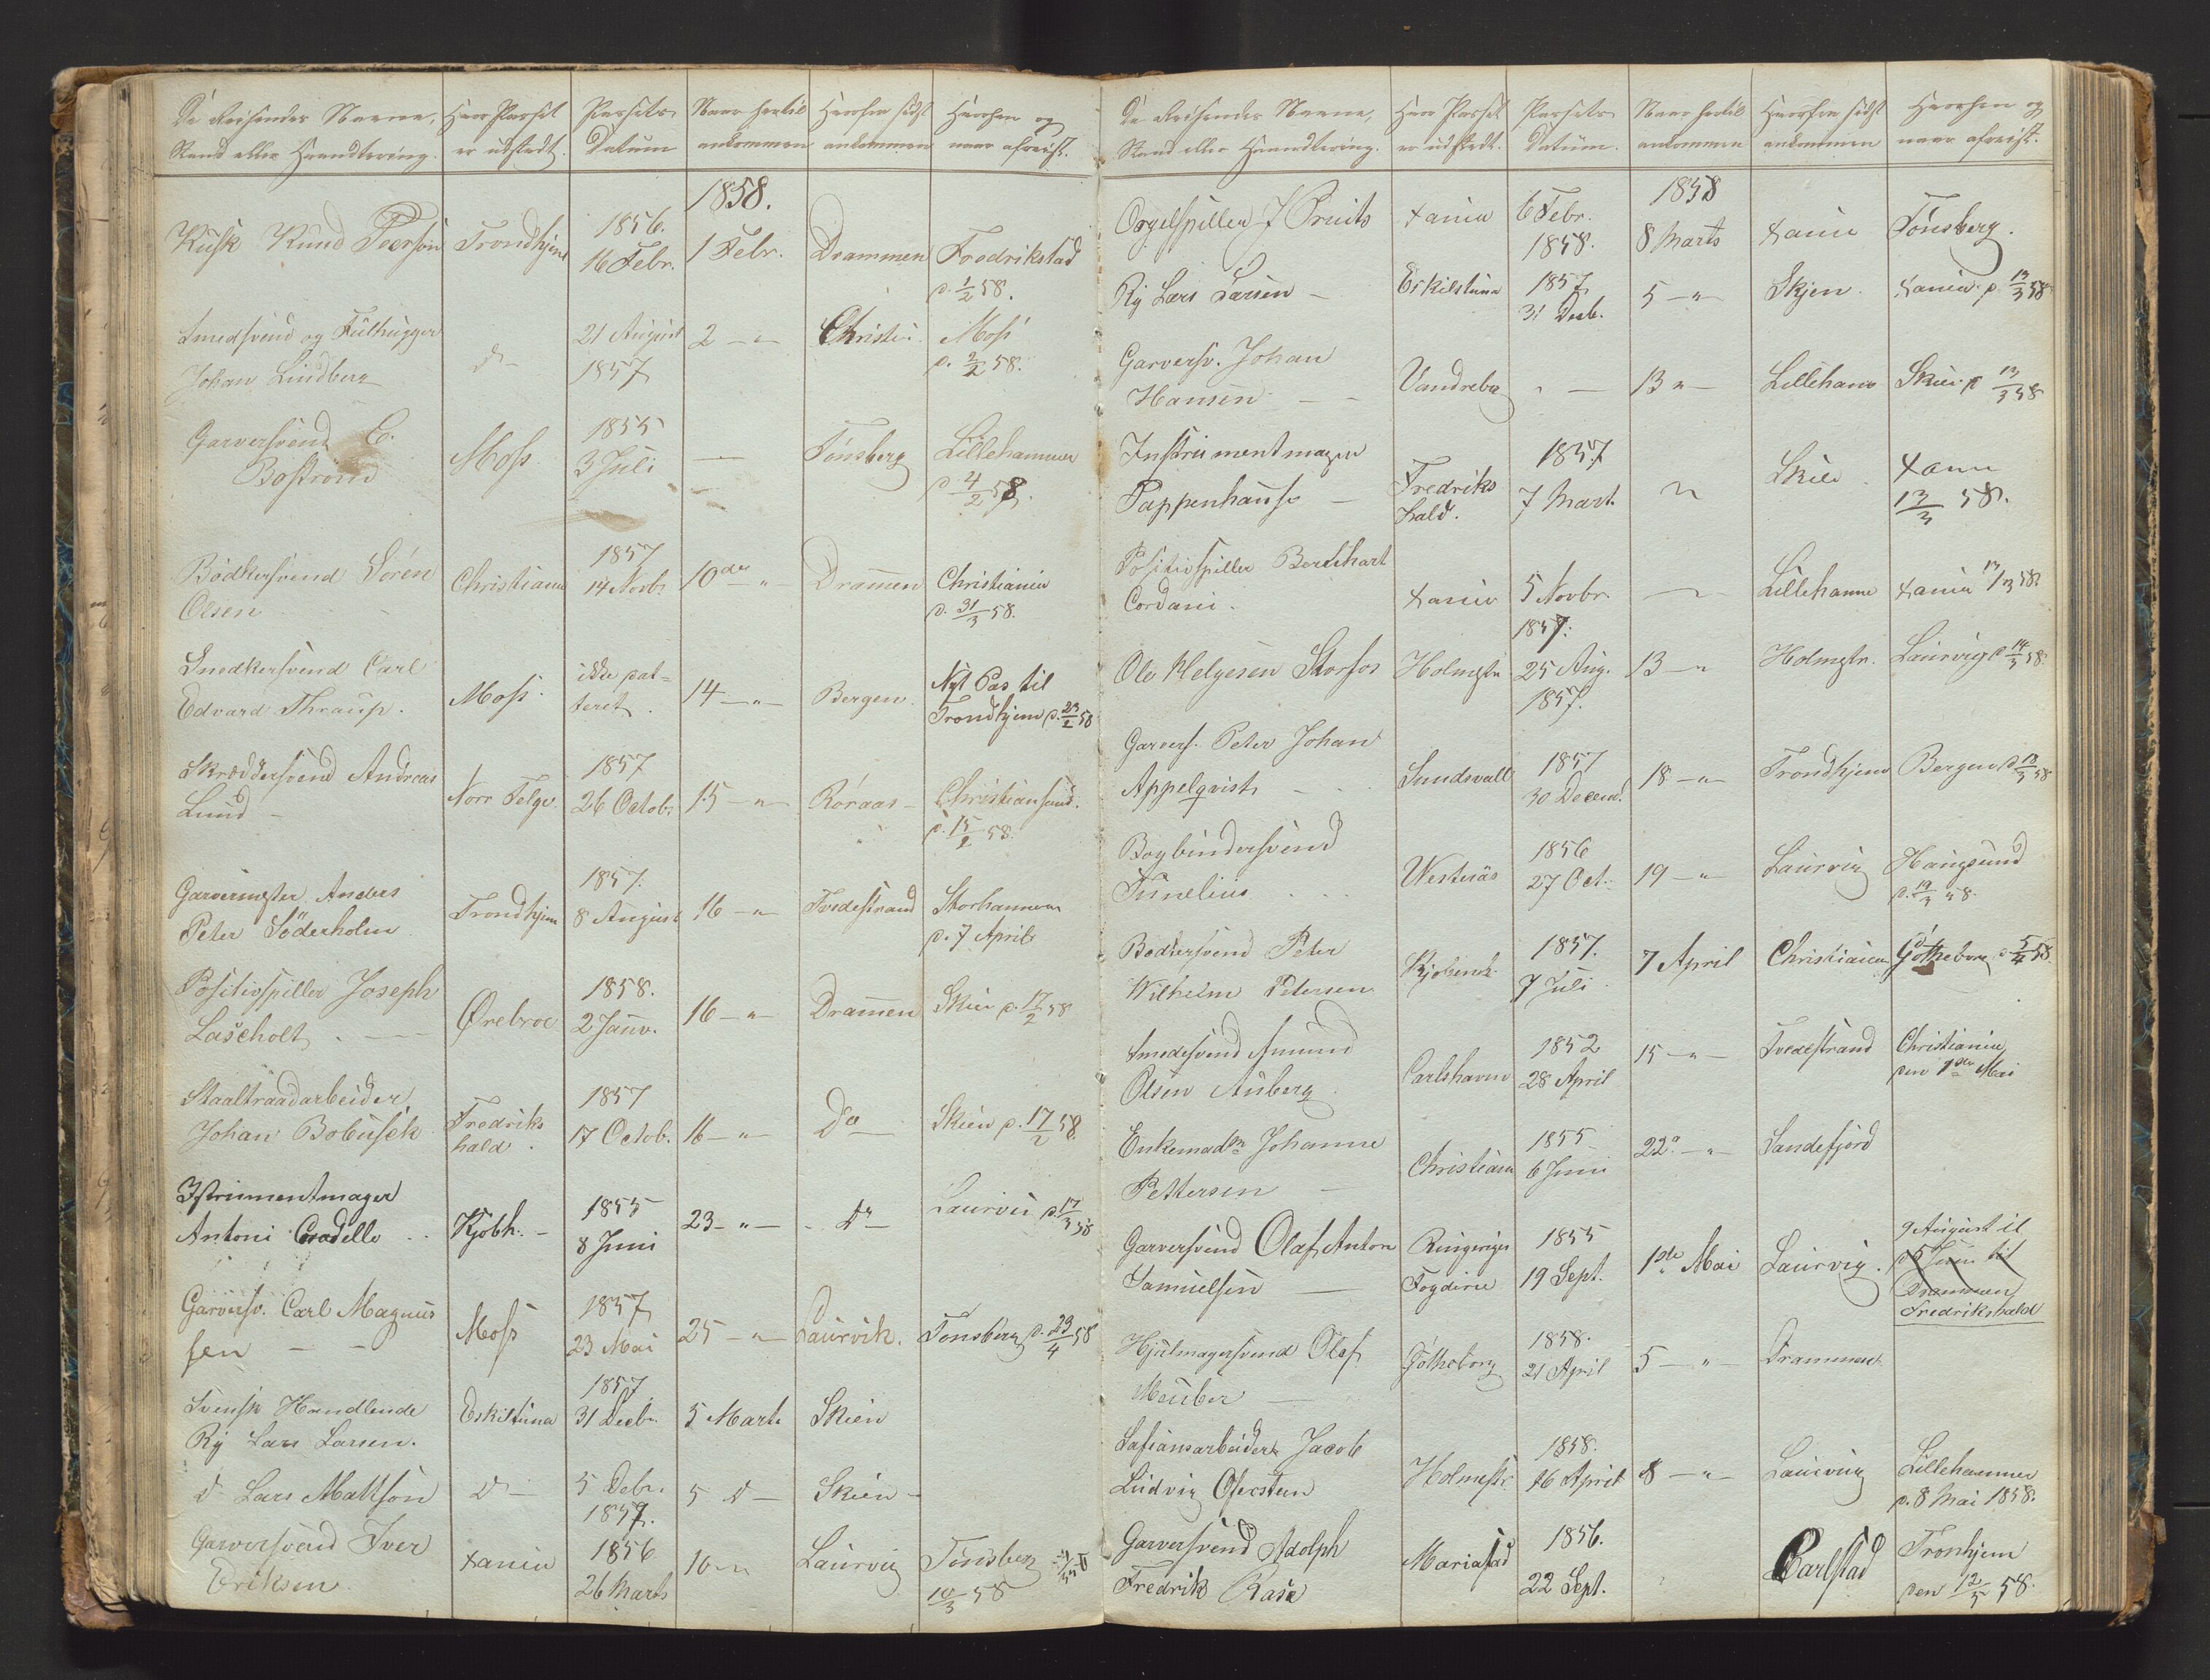 De Reisendes Navne,
Stand eller Haandtering.
Hvor Passet
er udstedt.
Passets
Datum
Naar hertil
ankommen
Hvorfra sidst
ankommen
Hvorhen og
naar afreist.
1858.
Kusk Knud Peerson
Trondhjem
1856.
16 Febr.
1 Febr.
Drammen
Fredrikstad
d. 1/2 58.
Smedsvend og Fiilhugger
Johan Lindberg
do
21 August
1857
2 - " -
Christi
Moss
d. 2/2 58.
Garversvend C.
Bostrøm
Moss
1855
3 Juli
Tønsberg
Lillehammer
d 4/2 58.
Bødkersvend Søren
Olsen
Christiania
1857
14 Novb.
10de "
Drammen
Christiania
d. 31/3 58.
Snedkersvend Carl
Edvard Thraup.
Moss.
ikke dat=
teret.
14 - " -
Bergen.
Nyt Pas til
Trondhjem d. 23/2 58
Skræddersvend Andreas
Lund
Norr Telge
1857
26 Octob.
15 - " -
Røraas
Christiansund.
d. 15/2 58.
Garvermester Anders
Peter Söderholm
Trondhjem
1857.
8 August
16 - " -
Tvedestrand
Storhammer
d. 7 April
Positivspiller Joseph
Lascholt
Ørebroe
1858.
2 Janv.
16 - " -
Drammen
Skien d. 17/2 58
Staaltraadarbeider
Johan Bobusek
Fredriks
hald.
1857
17 Octob.
16 - " -
Do
Skien d. 17/2 58.
Istrumentmager
Antoni Coradello
Kjøbh. -
1855
8 Juni
23 - " -
Do
Laurvig d. 17/3 58
Garversv. Carl Magnus
sen
Moss
1857
23 Mai
25 - " -
Laurvik.
Tønsberg d. 23/4 58
Svensk Handlende
Rÿ Lars Larsen.
Eskistuna
1857
31 Decbr.
5 Marts
Skien
do Lars Mattson
do
5 Debr.
1857.
5 do
Skien
Garversvend Iver
Eriksen
Xania
1856
26 Marts
10 - " -
Laurvig
Tønsberg
10/3 58
De Reisendes Navne,
Stand eller Haandtering.
Hvor Passet
er udstedt.
Passets
Datum.
Naar hertil
ankommen
Hvorfra sidst
ankommen
Hvorhen og
naar afreist.
1858
Orgelspiller J Pruits
Xania
6 Febr.
1858.
8 Marts
Xania
Tønsberg.
Rÿ Lars Larsen
Eskilstuna
1857
31 Decb.
5 - " -
Skjen
Xania d. 13/3 58
Garversv. Johan
Hansen
Vandrebog
" -
13 " -
Lillehamr
Skien d 13/3 58
Instrumentmager
Pappenhause
Fredriks
hald.
1857
7 Mart.
"
Skien
Xania
13/3 58.
Positivspiller Bernhart
Cordani.
Xania
5 Novbr.
1857.
Lillehamr
Xania 13/3 58.
Ole Helgesen Storfos
Holmestr
25 Aug.
1857.
13 - "
Holmstr.
Laurvig d 14/3 58.
Garvers. Peter Johan
Appelqvist
Sundsvall
1857
30 Decemb.
18 - " -
Trondhjem
Bergen d 18/3 58
Bogbindersvend
Tunelius
Westerås
1856
27 Oct.
19 - " -
Laurvig
Haugsund
d. 19/3 58.
Bødkersvend Peter
Wilhelm Petersen
Kjøbenh.
1857.
7 Juli
7 April
Christiania
Gøtheborg d 5/4 58.
Smedesvend Amund
Olsen Auberg.
Carlshavn
1852
28 April
15 - " -
Tvedestrand
Christiania
den 1ste Mai
Enkemadm Johanne
Pettersen
Christiania
1855
6 Juni
22de - " -
Sandefjord
Garversvend Olaf Anton
Samuelsen
Ringeriges
Fogderie
1855
19 Sept.
1ste Mai
Laurvig.
9 August til
d 5 Juni til
Drammen
Fredrikshald
Hjulmagersvend Olof
Meuber
Gøtheborg
1858.
21 April
5 - " -
Drammen
Safiansarbeider Jacob
Ludvig Ofersteen
Holmestr.
1858.
16 April
8 - " -
Laurvig
Lillehammer
d. 8 Mai 1858.
Garversvend Adolph
Fredrik Rase
Mariestad
1856.
22 Sept.
Carlstad
Tronhjem
den 12/5 58.